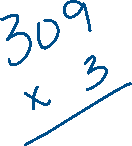 309
× 3